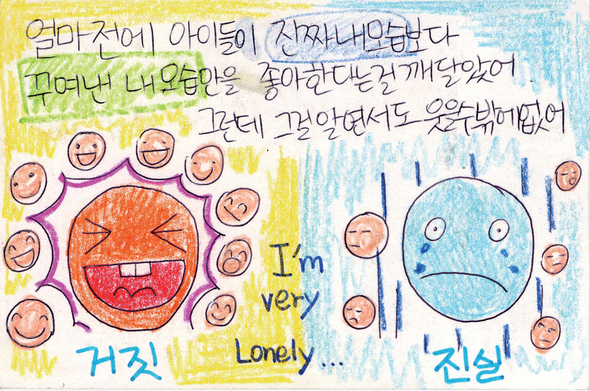 얼마전에 아이들이 진짜내모습보다
꾸며낸 내모습만을 좋아한다는걸 깨달았어.
그런데 그걸알면서도 웃을수밖에없어
I'm
very
Lonely...
거짓
진실